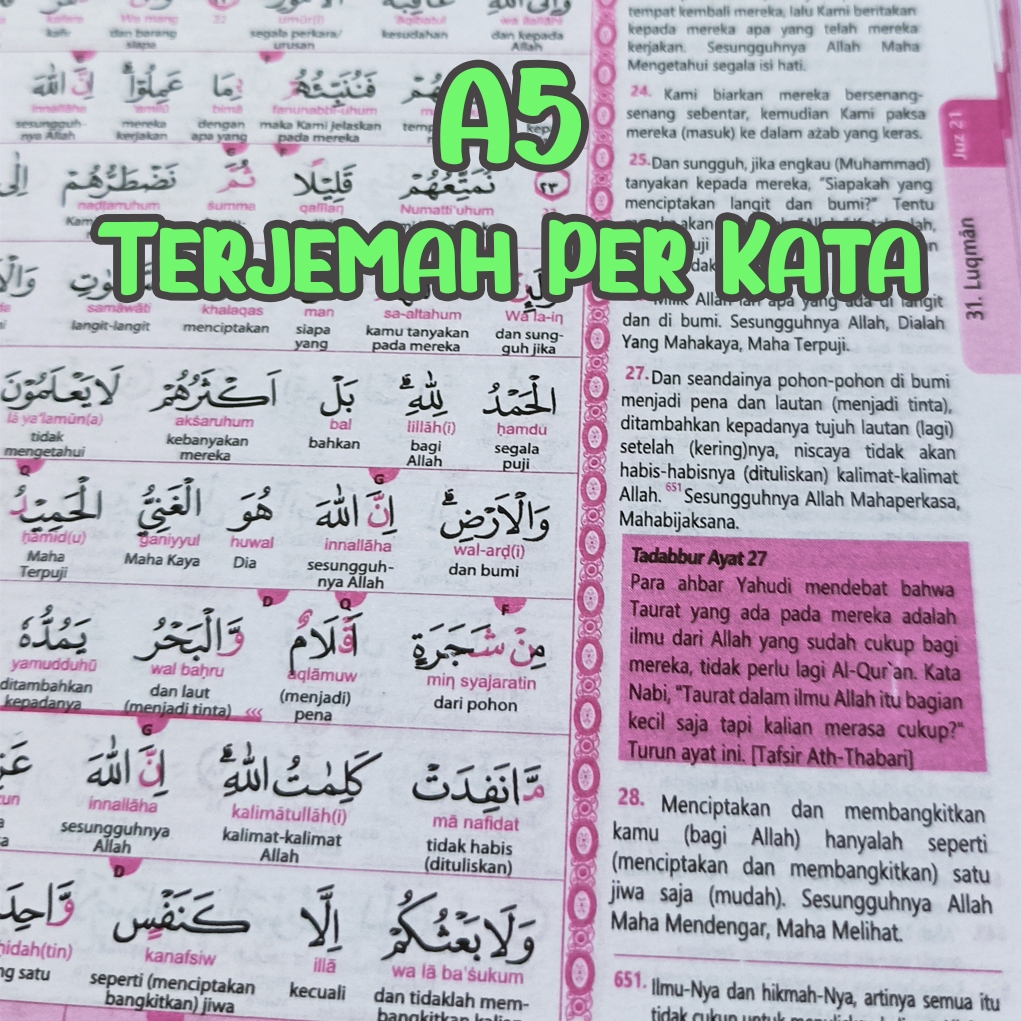 A5
TERJEMAH PER KATA
wa ilallāhi
kesudahan
dan kepada
segala perkara/
Allah
urusan
dan barang
siapa
kafir
اِنَّ اللّٰهَ
عَمِلُوْا
بِمَا
فَنُنَبِّئُهُمْ
innallāha
'amilū
bimā
fanunabbi-uhum
sesungguh-
mereka
dengan
maka Kami jelaskan
nya Allah
kerjakan
apa yang
pada mereka
نُمَتِّعُهُمْ
قَلِيْلًا
ثُمَّ
نَضْطَرُّهُمْ
٢٣
Numatti'uhum
qalīlan
ṡumma
naḍṭarruhum
Wa la-in
sa-altahum
man
khalaqas
samāwāti
dan sung-
kamu tanyakan
siapa
menciptakan
langit-langit
guh jika
pada mereka
yang
الْحَمْدُ
لِلّٰهِ
بَلْ
اَكْثَرُهُمْ
لَا يَعْلَمُوْنَ
ḥamdu
lillāh(i)
bal
akṡaruhum
lā ya'lamūn(a)
segala
bagi
bahkan
kebanyakan
tidak
puji
Allah
mereka
mengetahui
وَالْاَرْضِ
اِنَّ اللّٰهَ
هُوَ
الْغَنِيُّ
الْحَمِيْدُ
wal-arḍ(i)
innallāha
huwal
ganiyyul
ḥamīd(u)
dan bumi
sesungguh-
Dia
Maha Kaya
Maha
nya Allah
Terpuji
مِنْ شَجَرَةٍ
اَقْلَامٌ
وَّالْبَحْرُ
يَمُدُّهٗ
min syajaratin
aqlāmuw
wal baḥru
yamudduhū
dari pohon
(menjadi)
dan laut
ditambahkan
pena
(menjadi tinta)
kepadanya
مَّا نَفِدَتْ
كَلِمٰتُ اللّٰهِ
اِنَّ اللّٰهَ
mā nafidat
kalimātullāh(i)
innallāha
tidak habis
kalimat-kalimat
sesungguhnya
(dituliskan)
Allah
Allah
وَلَا بَعْثُكُمْ
اِلَّا
كَنَفْسٍ
wa lā ba'ṡukum
illā
kanafsiw
dan tidaklah mem-
kecuali
seperti (menciptakan
ng satu
bangkitkan) jiwa
tempat kembali mereka, lalu Kami beritakan
kepada mereka apa yang telah mereka
kerjakan. Sesungguhnya Allah Maha
Mengetahui segala isi hati.
24. Kami biarkan mereka bersenang-
senang sebentar, kemudian Kami paksa
mereka (masuk) ke dalam azab yang keras.
25. Dan sungguh, jika engkau (Muhammad)
tanyakan kepada mereka, "Siapakah yang
menciptakan langit dan bumi?" Tentu
Allah-lah apa yang ada di langit
dan di bumi. Sesungguhnya Allah, Dialah
Yang Mahakaya, Maha Terpuji.
27. Dan seandainya pohon-pohon di bumi
menjadi pena dan lautan (menjadi tinta),
ditambahkan kepadanya tujuh lautan (lagi)
setelah (kering)nya, niscaya tidak akan
habis-habisnya (dituliskan) kalimat-kalimat
Allah. 651 Sesungguhnya Allah Mahaperkasa,
Mahabijaksana.
Tadabbur Ayat 27
Para ahbar Yahudi mendebat bahwa
Taurat yang ada pada mereka adalah
ilmu dari Allah yang sudah cukup bagi
mereka, tidak perlu lagi Al-Qur`an. Kata
Nabi, "Taurat dalam ilmu Allah itu bagian
kecil saja tapi kalian merasa cukup?"
Turun ayat ini. [Tafsir Ath-Thabari]
28. Menciptakan dan membangkitkan
kamu (bagi Allah) hanyalah seperti
(menciptakan dan membangkitkan) satu
jiwa saja (mudah). Sesungguhnya Allah
Maha Mendengar, Maha Melihat.
651. Ilmu-Nya dan hikmah-Nya, artinya semua itu
Juz 21
31. Luqmân